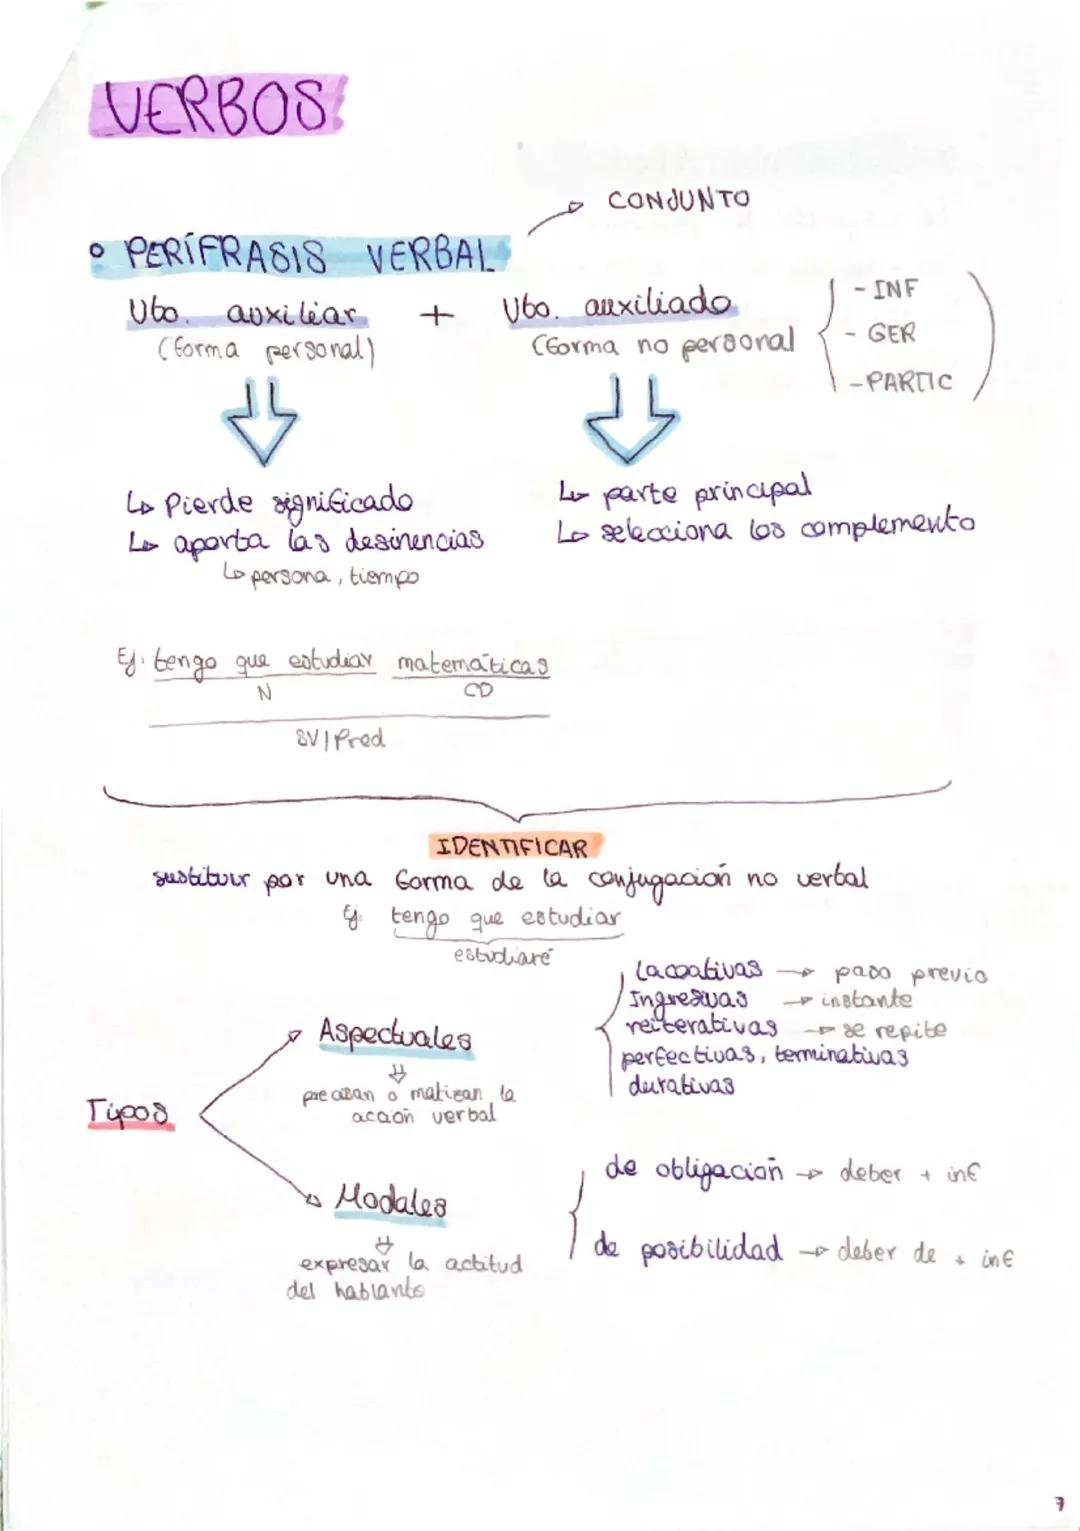 VERBOS
CONJUNTO
PERÍFRASIS VERBAL
Vbo. auxiliar + Vbo. auxiliado
(forma personal)
(forma no personal
- INF
- GER
- PARTIC
)
Pierde significado
aporta las desinencias
persona, tiempo
parte principal
selecciona los complemento
Ej. tengo que estudiar matemáticas
N CD
SV/Pred
IDENTIFICAR
sustituir por una forma de la conjugación no verbal
Ej. tengo que estudiar
estudiaré
Tipos
Aspectuales
precisan o matizan la
acción verbal
Ingresivas → instante
reiterativas → se repite
perfectivas, terminativas
durativas
Modales
expresar la actitud
del hablante
de obligación → deber + inf
de posibilidad → deber de + inf
7